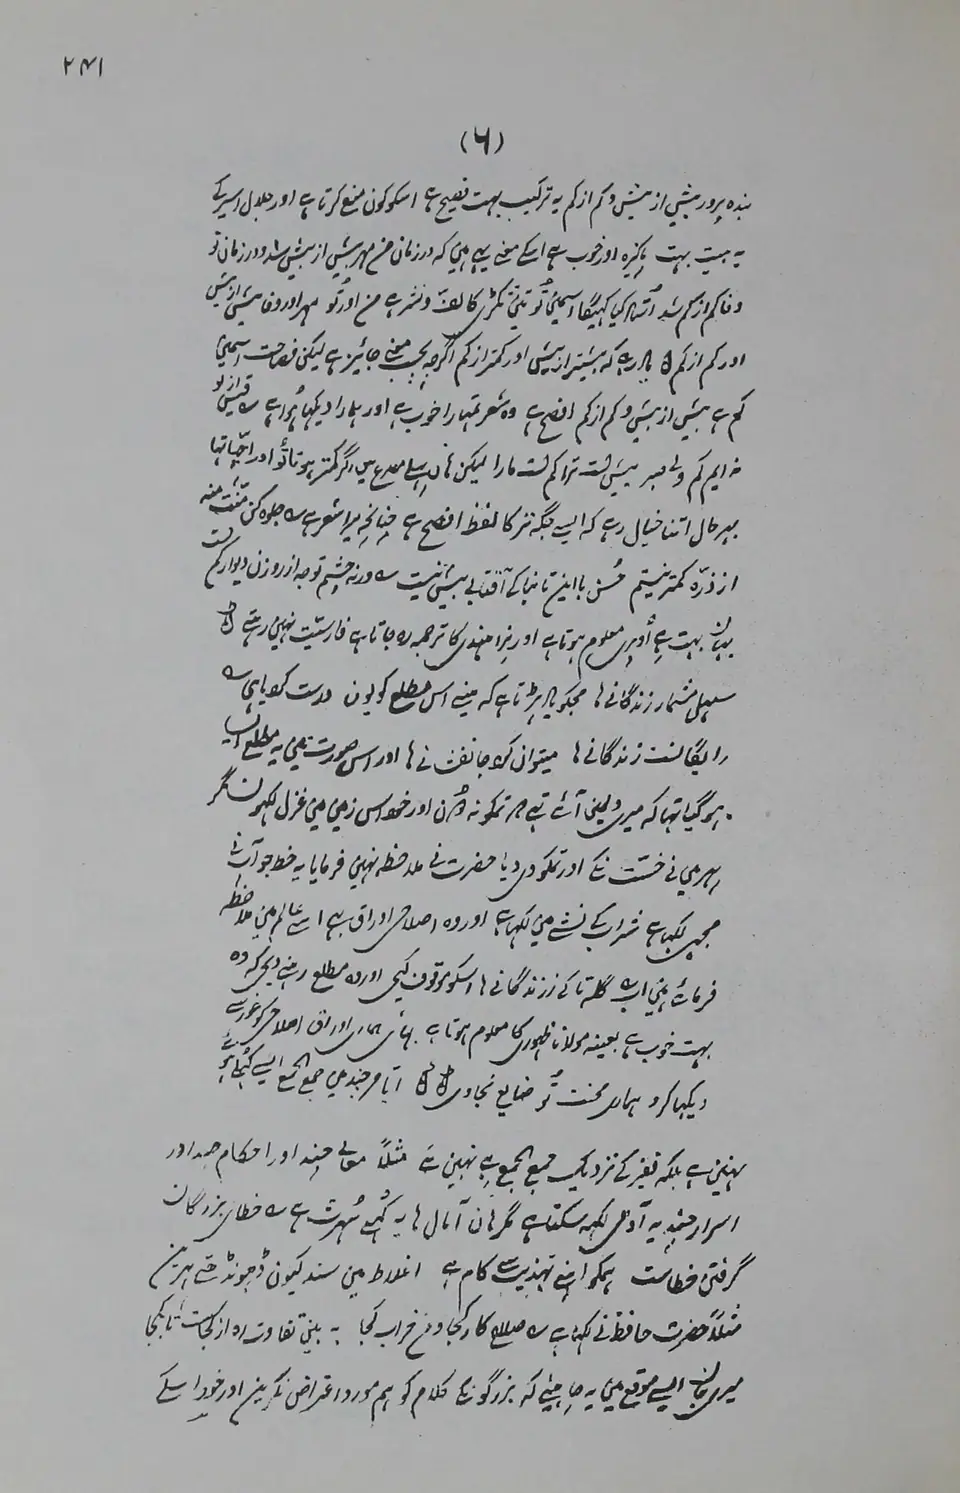 ۲۴۱
(۶)
بنده پرور بیشی از بیش و کم از کم یہ ترکیب بہت فصیح ہے اسکو کون منع کرتا ہے اور جلال اسیر کے
یہ بیت بہت پاکیزہ اور خوب ہے اسکے معنے یہے ہین کہ در زمان من مہر بیش از بیش شد و در زمان تو
وفا کم از کم شد استاد کیا کہیگا اسمین تو تین ٹکڑی کا لف و نشر ہے من اور تو مہر اور وفا بیش از بیش
اور کم از کم یاد رہے کہ بیشتر از بیش اور کمتر از کم اگرچہ بحسب معنے جائیز ہے لیکن فصاحت اسمین
کم ہے بیش از بیش و کم از کم افصح ہے وہ شعر تمہارا خوب ہے اور ہمارا دیکہا ہوا ہے قیس از تو
نہ ایم کم ولے صبر بیش است ترا کم است مارا لیکن ہان پہلے مصرع مین اگر کمتر ہوتا تو اور اچہا تہا
بہر حال اتنا خیال رہے کہ ایسے جگہ تر کا لفظ افصح ہے چنانچہ میرا شعر ہے جلوہ کن منت منہ
از ذرّہ کمتر نیستم حُسن با این تابناکے آفتابے بیش نیست ورنہ چشم تو چہ از روزن دیوار کم است
یہان بہت ہے اُوپری معلوم ہوتا ہے اور نرا ہندی کا ترجمہ رہ جاتا ہے فارسیت نہین رہتے
سہل شمار زندگانے ہا مجکو یاد پڑتا ہے کہ مینے اس مطلع کو یون درست کر دیا ہی
رایگانست زندگانے ہا میتوان کرد جانفشانے ہا اور اس صورت مین یہ مطلع ایسا
ہو گیا تہا کہ میری دلمین آئے تہے کہ تمکو نہ دون اور خود اس زمین مین غزل لکہون مگر
پہر مین نے خست نکے اور تمکو دی دیا حضرت نے ملاحظہ نہین فرمایا یہ خط جو آپنے
مجہی لکہا ہے شراب کے نشے مین لکہا ہے اور وہ اصلاحی اوراق بہے اسے عالم مین ملاحظہ
فرمائے ہین اب گلہ تا کے ز زندگانے ہا اسکو موقوف کیجی اور وہ مطلع رہنے دیجی کہ وہ
بہت خوب ہے بعینہ مولانا ظہوری کا معلوم ہوتا ہے بہائی ہماری اوراق اصلاحی کو غور سے
دیکہا کرو ہماری محنت تو ضایع نجاوی ایام چند مین جمع الجمع ایسے کہلی ہوئے
نہین ہے بلکہ فقیر کے نزدیک جمع الجمع ہے نہین ہے مثلاً معانے چند اور احکام چند اور
اسرار چند یہ آدمی لکہہ سکتا ہے مگر ہان آمال ہا یہ کہلی شہرت ہے خطای بزرگان
گرفتن خطاست ہمکو اپنے تہذیب سے کام ہے اغلاط مین سند کیون ڈہونڈہتے پہرین
مثلاً حضرت حافظ نے لکہا ہے صلاح کار کجا و من خراب کجا بہ بین تفاوت رہ از کجاست تا بکجا
میری جان ایسے موقع مین یہ چاہیئے کہ بزرگونکے کلام کو ہم مورد اعتراض نکرین اور خود اسکے